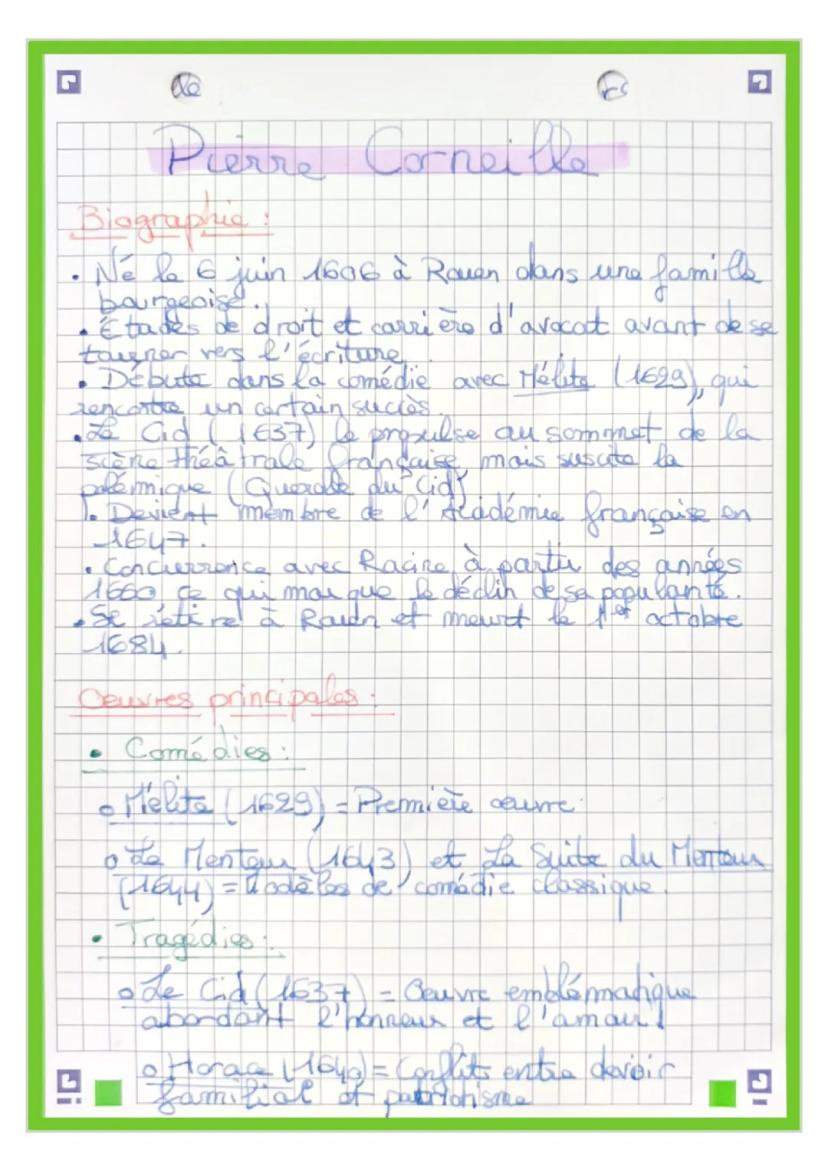 Pierre Corneille
Biographie :
• Né le 6 juin 1606 à Rouen dans une famille
bourgeoise.
• Études de droit et carrière d'avocat avant de se
tourner vers l'écriture
• Débute dans la comédie avec Mélite (1629), qui
rencontre un certain succès.
• Le Cid (1637) le propulse au sommet de la
scène théâtrale française mais suscite la
polémique (Querelle du Cid)
• Devient membre de l'Académie française en
1647.
• Concurrence avec Racine à partir des années
1660 ce qui marque le déclin de sa popularité.
• Se retire à Rouen et meurt le 1er octobre
1684.
Oeuvres principales :
• Comédies :
o Mélite (1629) = Première œuvre
o Le Menteur (1643) et La Suite du Menteur
(1644) = Modèles de comédie classique.
• Tragédies :
o Le Cid (1637) = Oeuvre emblématique
abordant l'honneur et l'amour !
o Horace (1640) = Conflits entre devoir
familial et patriotisme